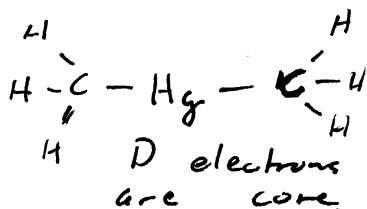 H H
H - C - Hg - C - H
H H
D electrons
are core